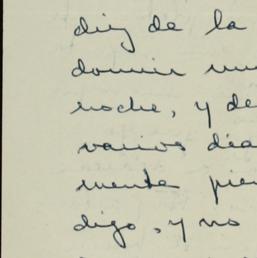 diez de la
dormir
noche, y de
varios día
mente pie
digo, y no